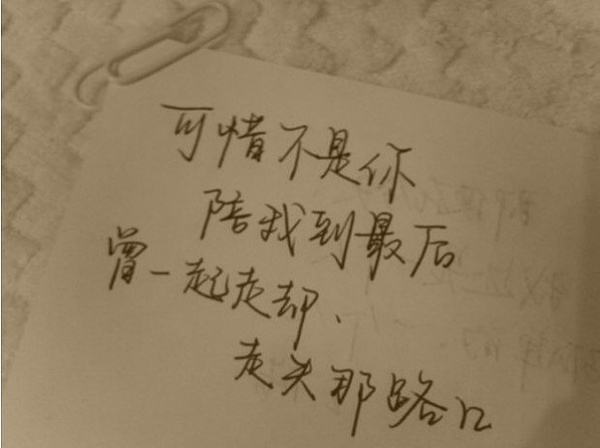 可惜不是你
陪我到最后
曾一起走却、
走失那路口